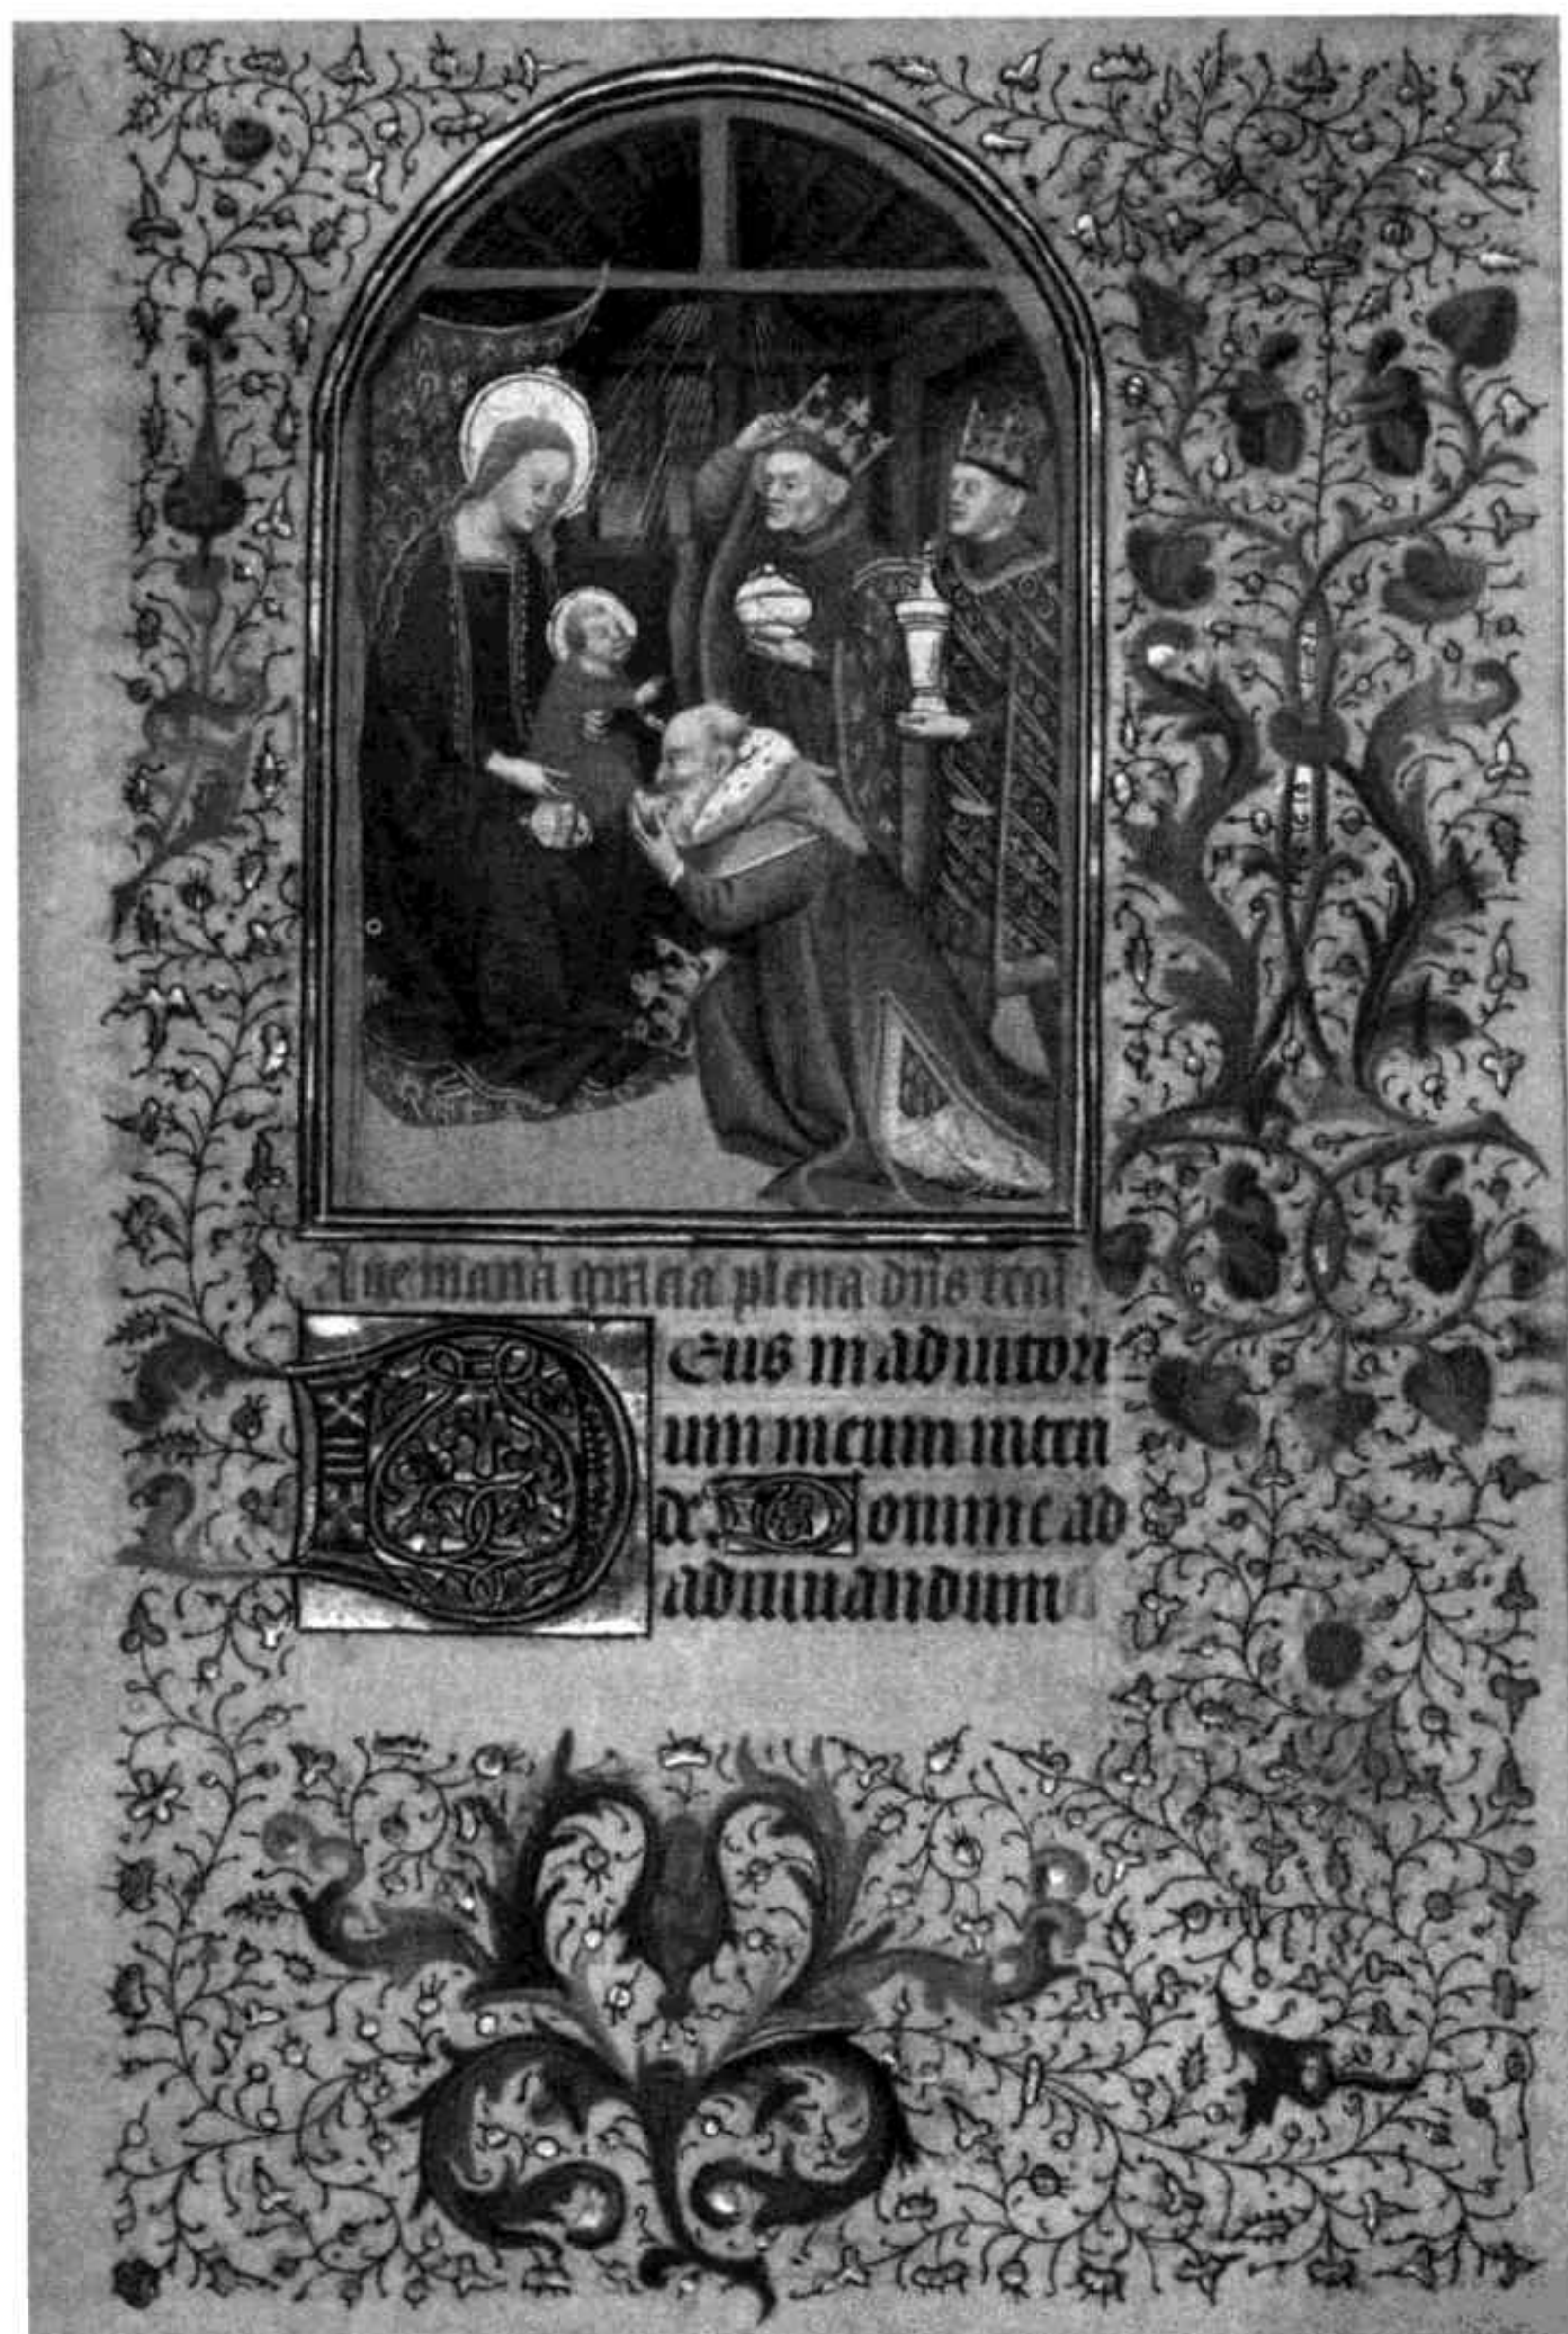 Ave maria gracia plena dns tecū.
Deus in adiutori
um meum inten
de. Domine ad
adiuuandum